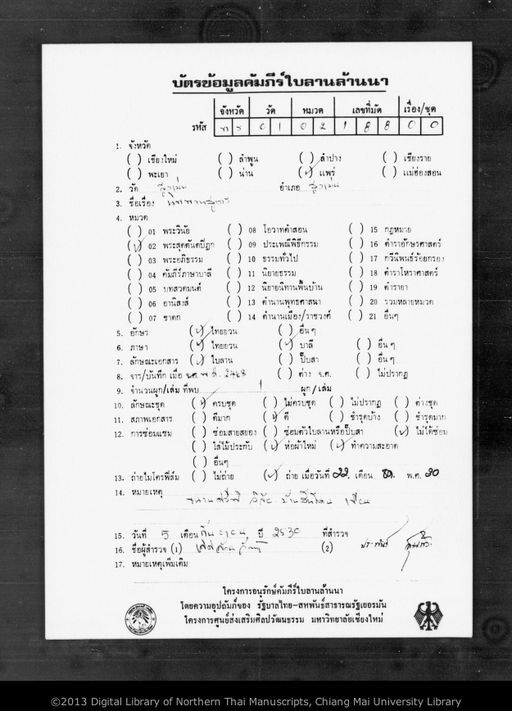 บัตรข้อมูลคัมภีร์ใบลานล้านนา
จังหวัด วัด หมวด เลขที่มัด เรื่อง/ชุด
รหัส 0 1 0 2 1 8 8 0 0
1. จังหวัด
( ) เชียงใหม่ ( ) ลำพูน ( ) ลำปาง ( ) เชียงราย
( ) พะเยา ( ) น่าน (✓) แพร่ ( ) แม่ฮ่องสอน
2. วัด สูงเม่น อำเภอ สูงเม่น
3. ชื่อเรื่อง
4. หมวด
( ) 01 พระวินัย ( ) 08 โอวาทคำสอน ( ) 15 กฎหมาย
(✓) 02 พระสุตตันตปิฎก ( ) 09 ประเพณีพิธีกรรม ( ) 16 ตำราอักษรศาสตร์
( ) 03 พระอภิธรรม ( ) 10 ธรรมทั่วไป ( ) 17 กวีนิพนธ์ร้อยกรอง
( ) 04 คัมภีร์ภาษาบาลี ( ) 11 นิยายธรรม ( ) 18 ตำราโหราศาสตร์
( ) 05 บทสวดมนต์ ( ) 12 นิยายนิทานพื้นบ้าน ( ) 19 ตำรายา
( ) 06 อานิสงส์ ( ) 13 ตำนานพุทธศาสนา ( ) 20 รวมหลายหมวด
( ) 07 ชาดก ( ) 14 ตำนานเมือง/ราชวงศ์ ( ) 21 อื่นๆ
5. อักษร (✓) ไทยยวน ( ) อื่นๆ
6. ภาษา (✓) ไทยยวน (✓) บาลี ( ) อื่นๆ
7. ลักษณะเอกสาร (✓) ใบลาน ( ) ปั๊บสา ( ) อื่นๆ
8. จาร/บันทึก เมื่อ ( ) ต่าง จ.ศ. ( ) ไม่ปรากฏ
9. จำนวนผูก/เล่ม ที่พบ 1 ผูก/เล่ม
10. ลักษณะชุด (✓) ครบชุด ( ) ไม่ครบชุด ( ) ไม่ปรากฏ ( ) ต่างชุด
11. สภาพเอกสาร ( ) ดีมาก (✓) ดี ( ) ชำรุดบ้าง ( ) ชำรุดมาก
12. การซ่อมแซม ( ) ซ่อมสายสยอง ( ) ซ่อมตัวใบลานหรือปั๊บสา (✓) ไม่ได้ซ่อม
( ) ใส่ไม้ประกับ (✓) ห่อผ้าใหม่ (✓) ทำความสะอาด
( ) อื่นๆ
13. ถ่ายไมโครฟิล์ม ( ) ไม่ถ่าย (✓) ถ่าย เมื่อวันที่ 22 เดือน พ.ศ. 30
14. หมายเหตุ
15. วันที่ 5 เดือน กันยายน ปี 2530 ที่สำรวจ
16. ชื่อผู้สำรวจ (1) (2)
17. หมายเหตุเพิ่มเติม
โครงการอนุรักษ์คัมภีร์ใบลานล้านนา
โดยความอุปถัมภ์ของ รัฐบาลไทย-สหพันธ์สาธารณรัฐเยอรมัน
โครงการศูนย์ส่งเสริมศิลปวัฒนธรรม มหาวิทยาลัยเชียงใหม่
©2013 Digital Library of Northern Thai Manuscripts, Chiang Mai University Library